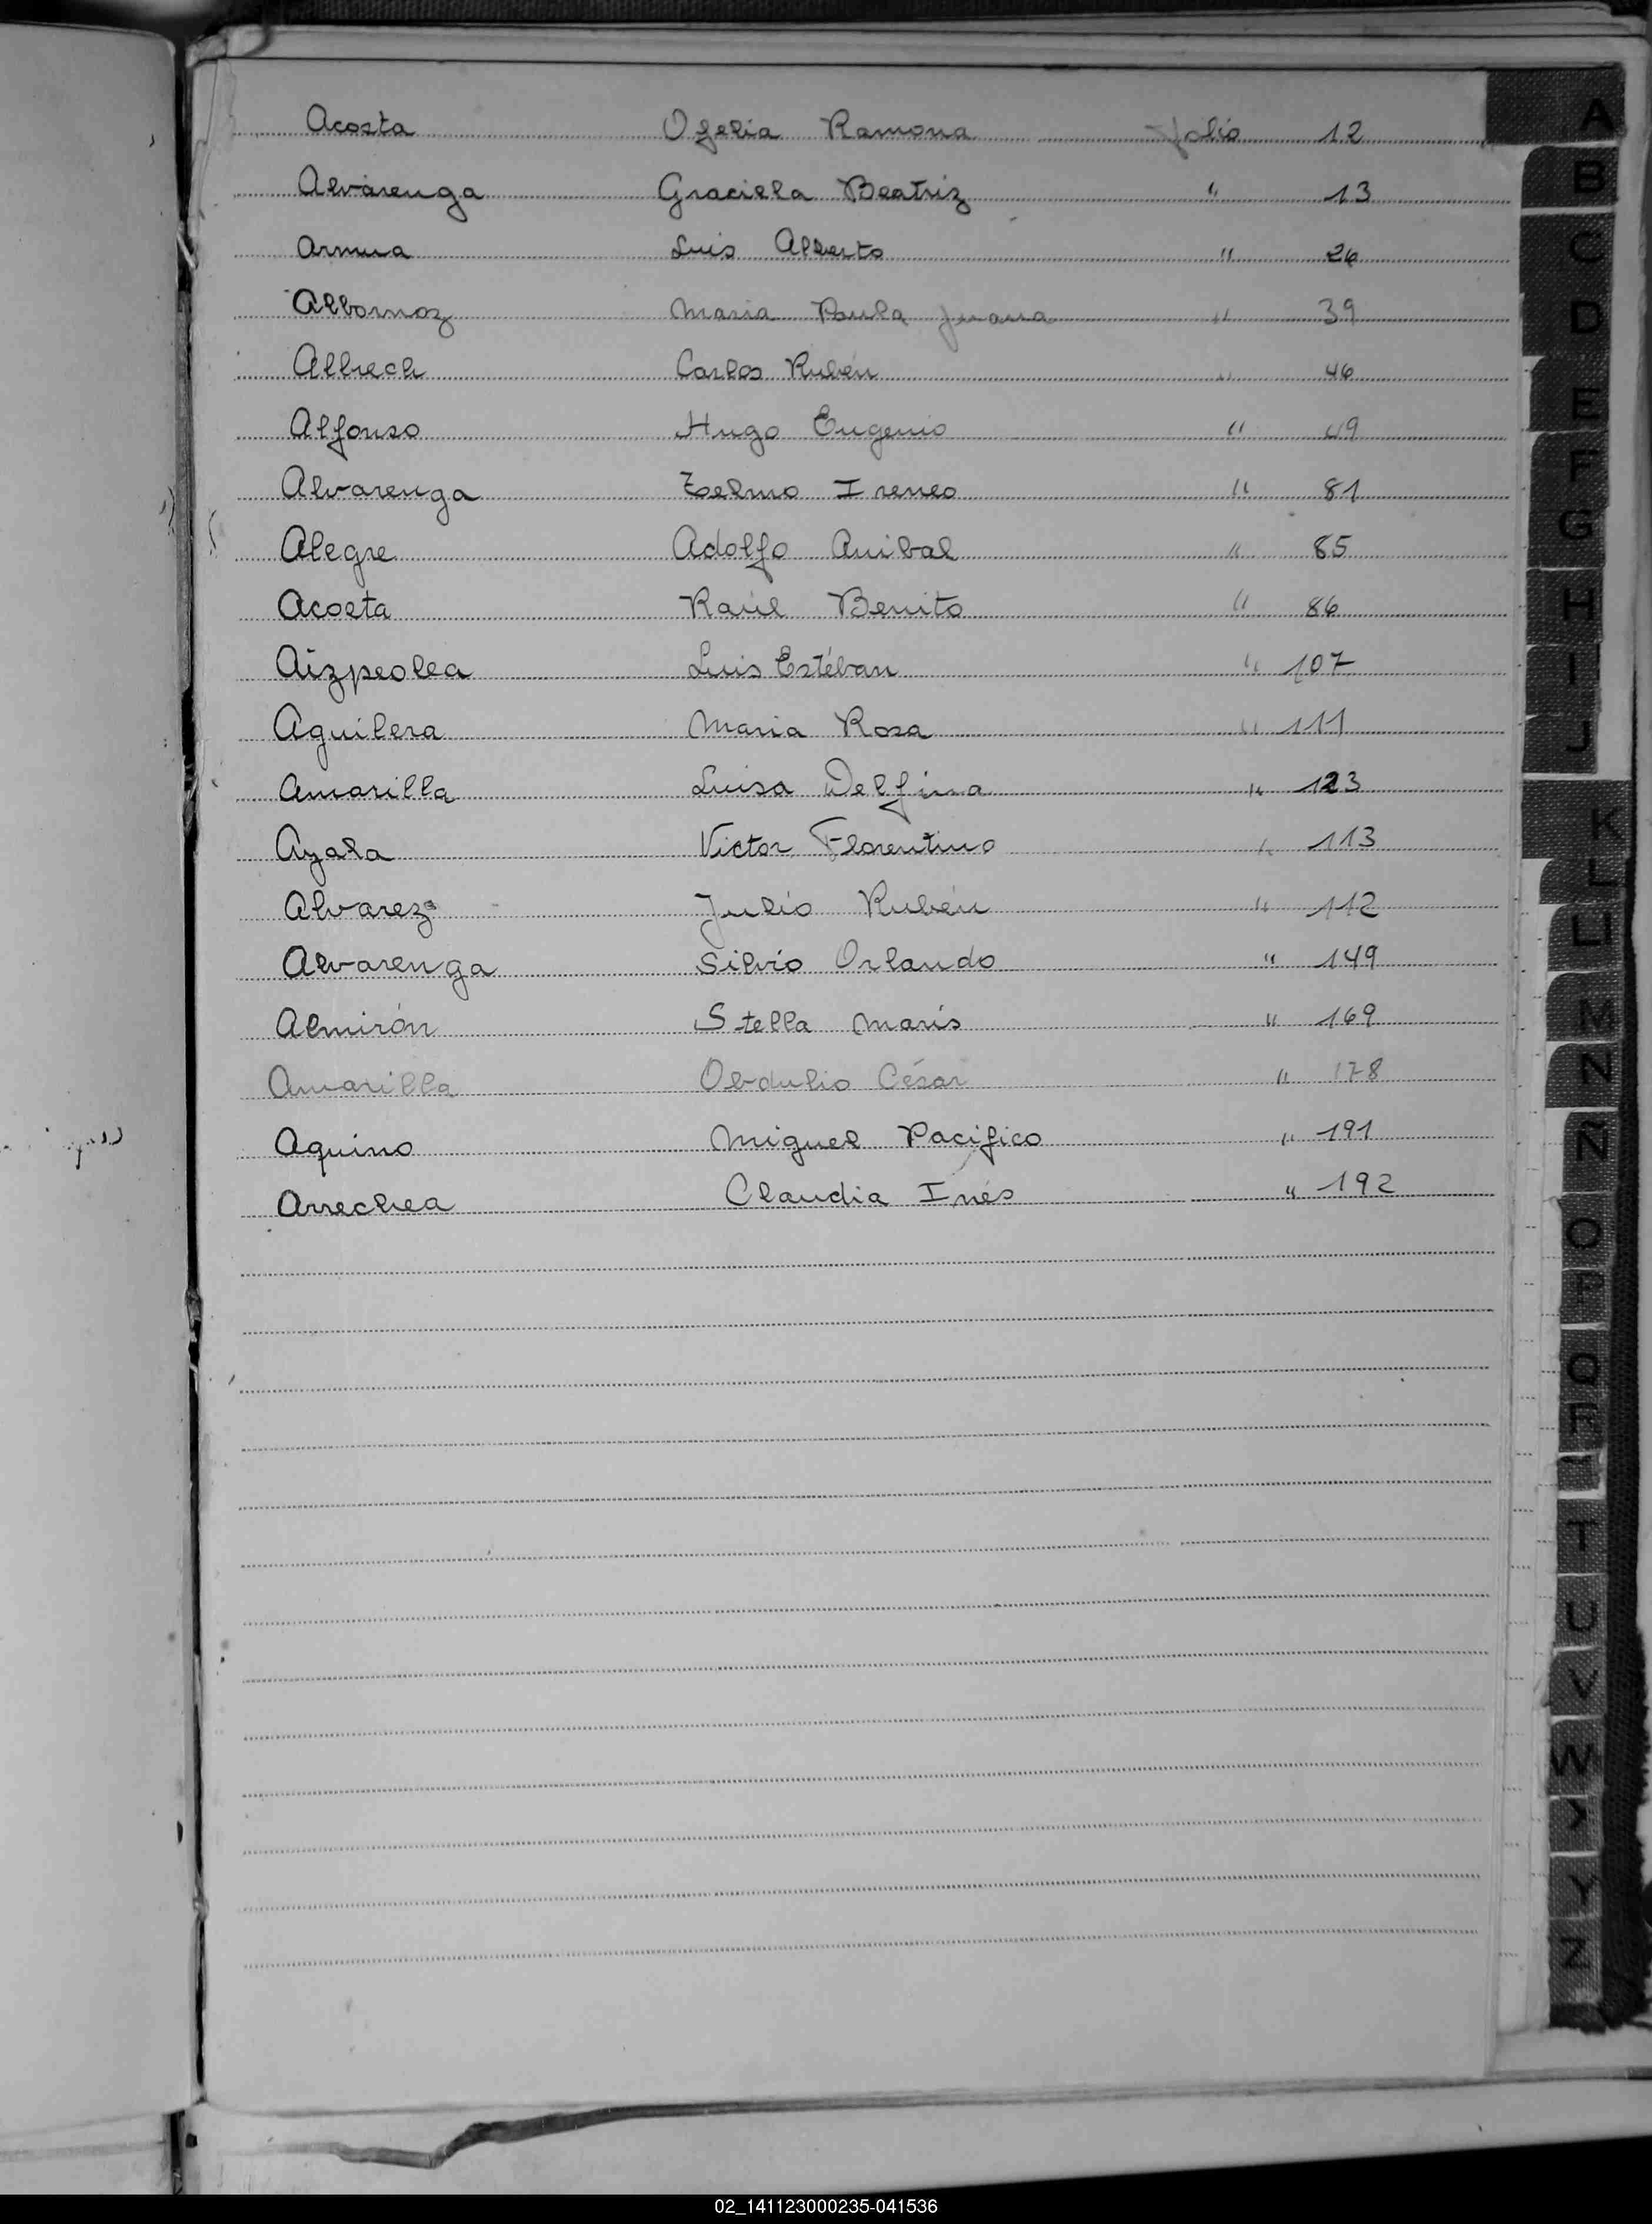 Acosta Ofelia Ramona folio 12
Alvarenga Graciela Beatriz " 13
Armua Luis Alberto " 26
Albornoz Maria Paula Juana " 39
Albrech Carlos Rubén " 46
Alfonso Hugo Eugenio " 49
Alvarenga Zelmo Ireneo " 81
Alegre Adolfo Anibal " 85
Acosta Raúl Benito " 86
Aizpeolea Luis Estéban " 107
Aguilera Maria Rosa " 111
Amarilla Luisa Delfina " 123
Ayala Victor Florentino " 113
Alvarez Julio Rubén " 112
Alvarenga Silvio Orlando " 149
Almirón Stella Maris " 169
Amarilla Obdulio César " 178
Aquino Miguel Pacifico " 191
Arrechea Claudia Inés " 192
A
B
C
D
E
F
G
H
I
J
K
L
LL
M
N
Ñ
O
P
Q
R
T
U
V
W
Y
Z
02_141123000235-041536